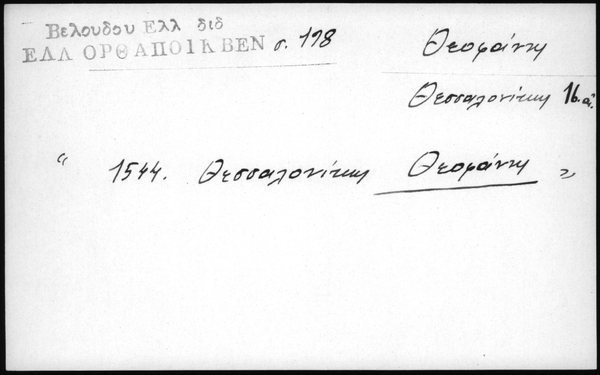 Βελουδου Ελλ διδ
ΕΛΛ ΟΡΘ ΑΠΟΙΚ ΒΕΝ σ. 118
Θεοφάνης
Θεσσαλονίκης 16. αἰ.
“ 1544. Θεσσαλονίκης Θεοφάνης ”